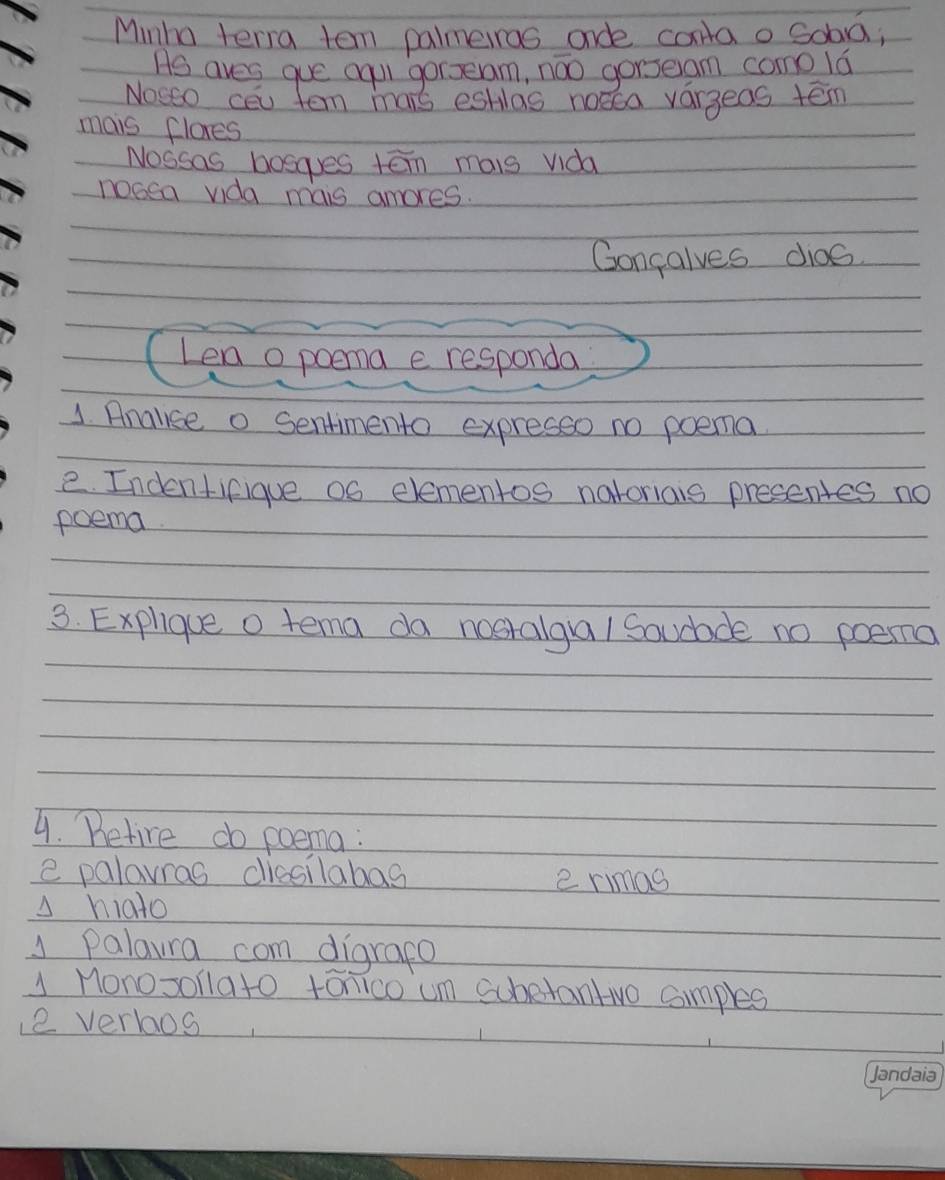 Minha terra tem palmeiras onde canta o Sabiá;
As aves que aqui gorjeam, não gorjeiam como lá
Nosso céu tem mais estrlas nossa várzeas têm
mais flores
Nossas bosques têm mais vida
nossa vida mais amores.
Gonçalves dias.
Leia o poema e responda:
1. Analise o sentimento expresso no poema.
2. Indentifique os elementos naturiais presentes no
poema.
3. Explique o tema da nostalgia / Saudade no poema
4. Retire do poema:
2 palavras dissílabas 2 rimas
1 hiato
1 palavra com dígrafo
1 Monossílato tônico um substantivo simples
2 verbos
Jandaia